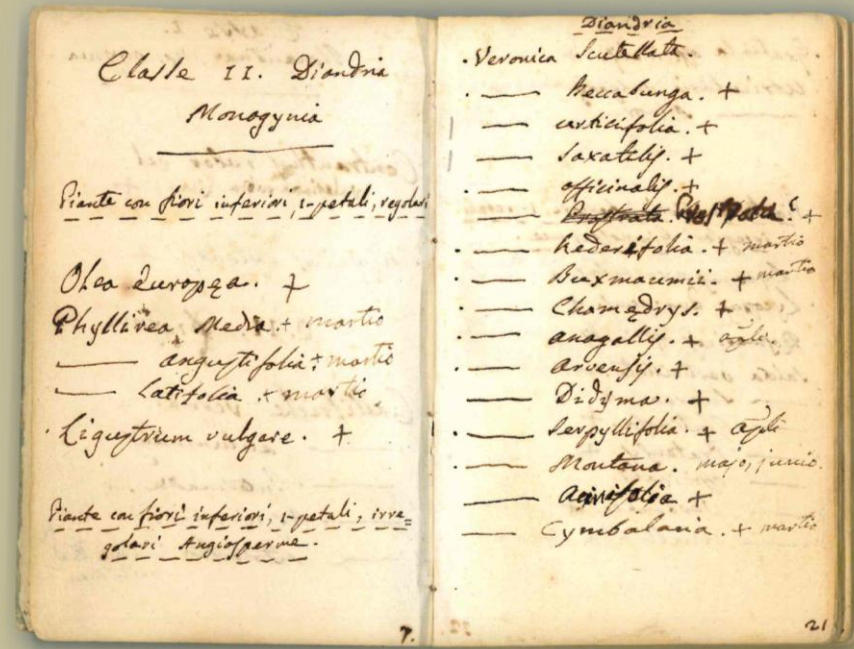 Classe II. Diandria
Monogynia
Piante con fiori inferiori, 1-petali, regolari
Olea Europęa. +
Phyllirea Media + martio
—— angustifolia + martio
—— Latifolia + martio
Ligustrum vulgare. +
Piante con fiori inferiori, 1-petali, irre=
golari Angiosperme.
7.
Diandria
Veronica Scutellata.
—— Beccabunga. +
—— urticifolia. +
—— Saxatilis. +
—— officinalis. +
—— Prostrata. +
—— hederifolia. + martio
—— Buxmaumii. + martio
—— Chamędrys. +
—— anagallis. +
—— arvensis. +
—— Didyma. +
—— Serpyllifolia. +
—— Montana. majo, junio.
—— acinifolia +
—— Cymbalaria. + martio
21